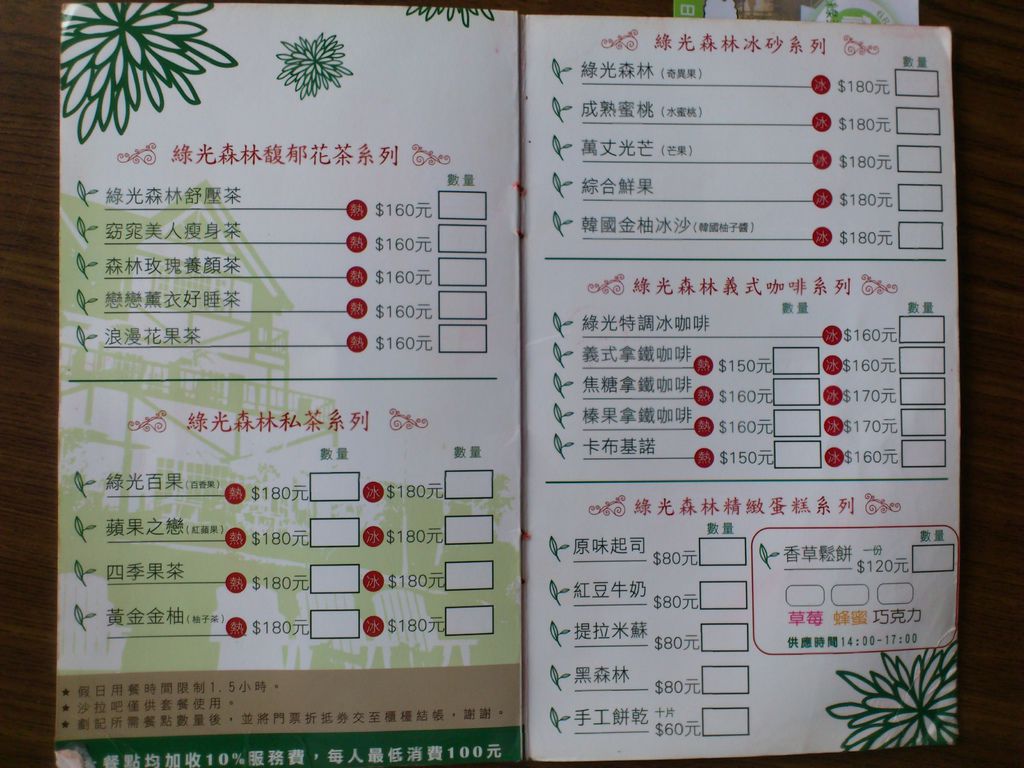 綠光森林馥郁花茶系列
數量
綠光森林舒壓茶 熱 $160元
窈窕美人瘦身茶 熱 $160元
森林玫瑰養顏茶 熱 $160元
戀戀薰衣好睡茶 熱 $160元
浪漫花果茶 熱 $160元
綠光森林私茶系列
數量 數量
綠光百果(百香果) 熱 $180元 冰 $180元
蘋果之戀(紅蘋果) 熱 $180元 冰 $180元
四季果茶 熱 $180元 冰 $180元
黃金金柚(柚子茶) 熱 $180元 冰 $180元
★ 假日用餐時間限制1.5小時。
★ 沙拉吧僅供套餐使用。
★ 劃記所需餐點數量後,並將門票折抵券交至櫃檯結帳,謝謝。
★ 餐點均加收10%服務費,每人最低消費100元
綠光森林冰砂系列
數量
綠光森林(奇異果) 冰 $180元
成熟蜜桃(水蜜桃) 冰 $180元
萬丈光芒(芒果) 冰 $180元
綜合鮮果 冰 $180元
韓國金柚冰沙(韓國柚子醬) 冰 $180元
綠光森林義式咖啡系列
數量 數量
綠光特調冰咖啡 冰 $160元
義式拿鐵咖啡 熱 $150元 冰 $160元
焦糖拿鐵咖啡 熱 $160元 冰 $170元
榛果拿鐵咖啡 熱 $160元 冰 $170元
卡布基諾 熱 $150元 冰 $160元
綠光森林精緻蛋糕系列
數量
原味起司 $80元
紅豆牛奶 $80元
提拉米蘇 $80元
黑森林 $80元
手工餅乾 十片 $60元
數量
香草鬆餅 一份 $120元
草莓 蜂蜜 巧克力
供應時間14:00-17:00